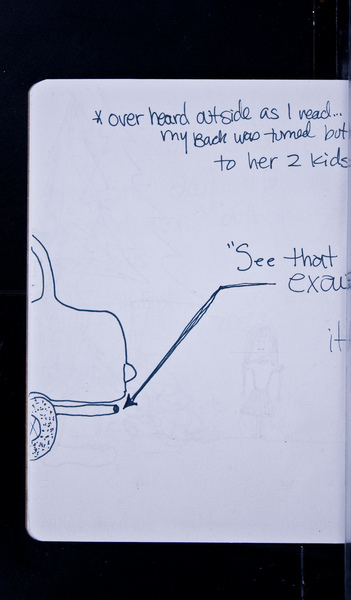 * over heard outside as I read...
my Back was turned but
to her 2 kids
"See that
exau
it